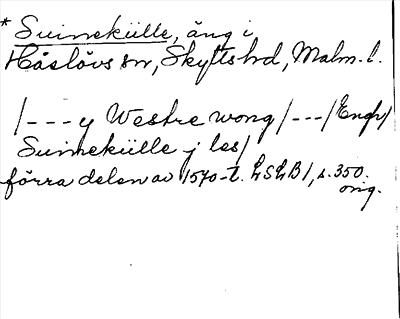 * Suinekülle, äng i
Håslövs sn, Skytts hd, Malm. l.
/---y Westre wong/---/Engh/
Suinekülle j las/
förra delen av 1570-t. LSLB 1, s. 350.
orig.